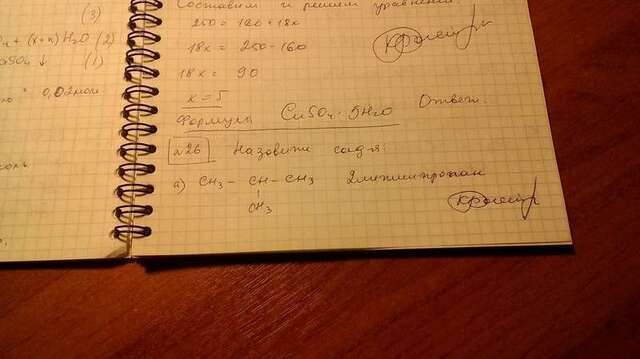 (3)
+ (x+n) H₂O (2)
SO₄ ↓ (1)
0,02моль
Составим и решим уравнение:
250 = 160 + 18x
18x = 250 - 160
18x = 90
x = 5
Формула CuSO₄ · 5H₂O Ответ.
№26 Назовите
а) CH₃ - CH - CH₃ 2метилпропан
CH₃